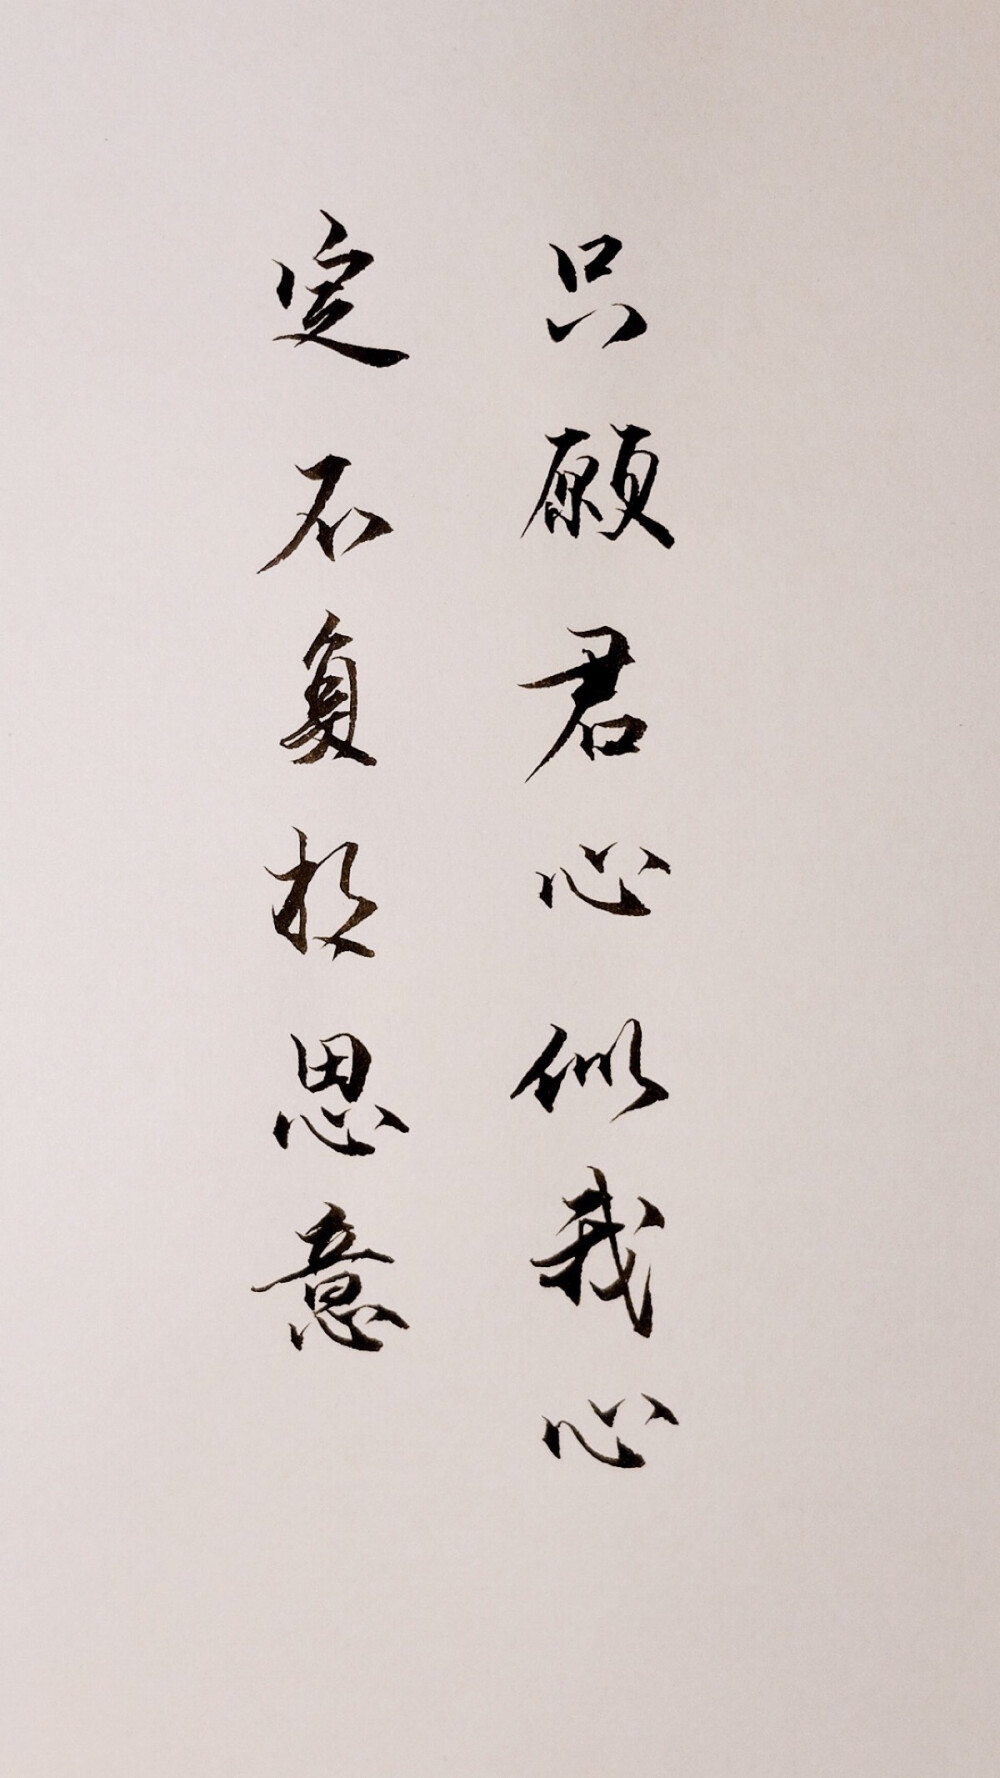 只願君心似我心
定不負相思意